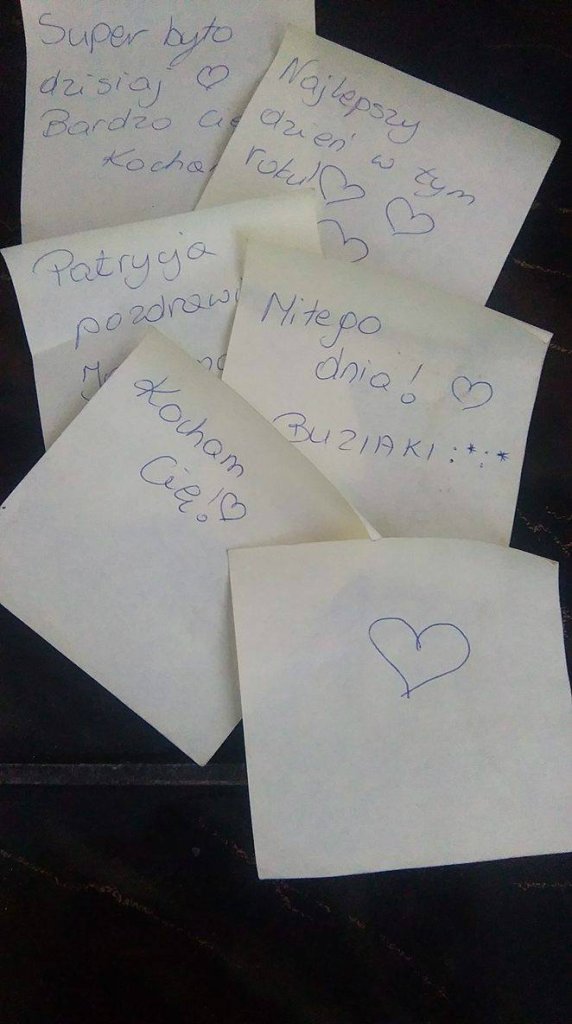 Super było
dzisiaj ♡
Bardzo Cię
Kocha
Najlepszy
dzień w tym
roku! ♡ ♡
♡
Patrycja
pozdrawi
Miłego
dnia! ♡
BUZIAKI :*:*
Kocham
Cię! ♡
♡